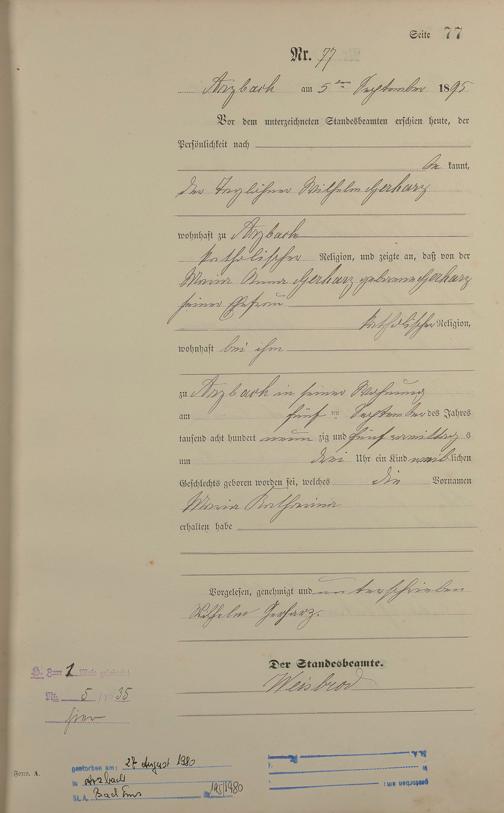 Seite 77
Nr. 77
Arzbach am 5ten September 1895
Vor dem unterzeichneten Standesbeamten erschien heute, der
Persönlichkeit nach
be kannt,
der Taglöhner Wilhelm Gerharz
wohnhaft zu Arzbach
katholischer Religion, und zeigte an, daß von der
Maria Anna Gerharz geborene Gerharz
seiner Ehefrau
katholischer Religion,
wohnhaft bei ihm
zu Arzbach in seiner Wohnung
am fünften September des Jahres
tausend acht hundert neun zig und fünf vormittags
um drei Uhr ein Kind weiblichen
Geschlechts geboren worden sei, welches die Vornamen
Maria Katharina
erhalten habe
Vorgelesen, genehmigt und unterschrieben
Wilhelm Gerharz.
Der Standesbeamte.
Weisbrod
1
Nr. 5 35
hier
gestorben am: 27 August 1980
in Arzbach
St. A. Bad Ems 1980
Form. A.
St. A.
in
gestorben am: